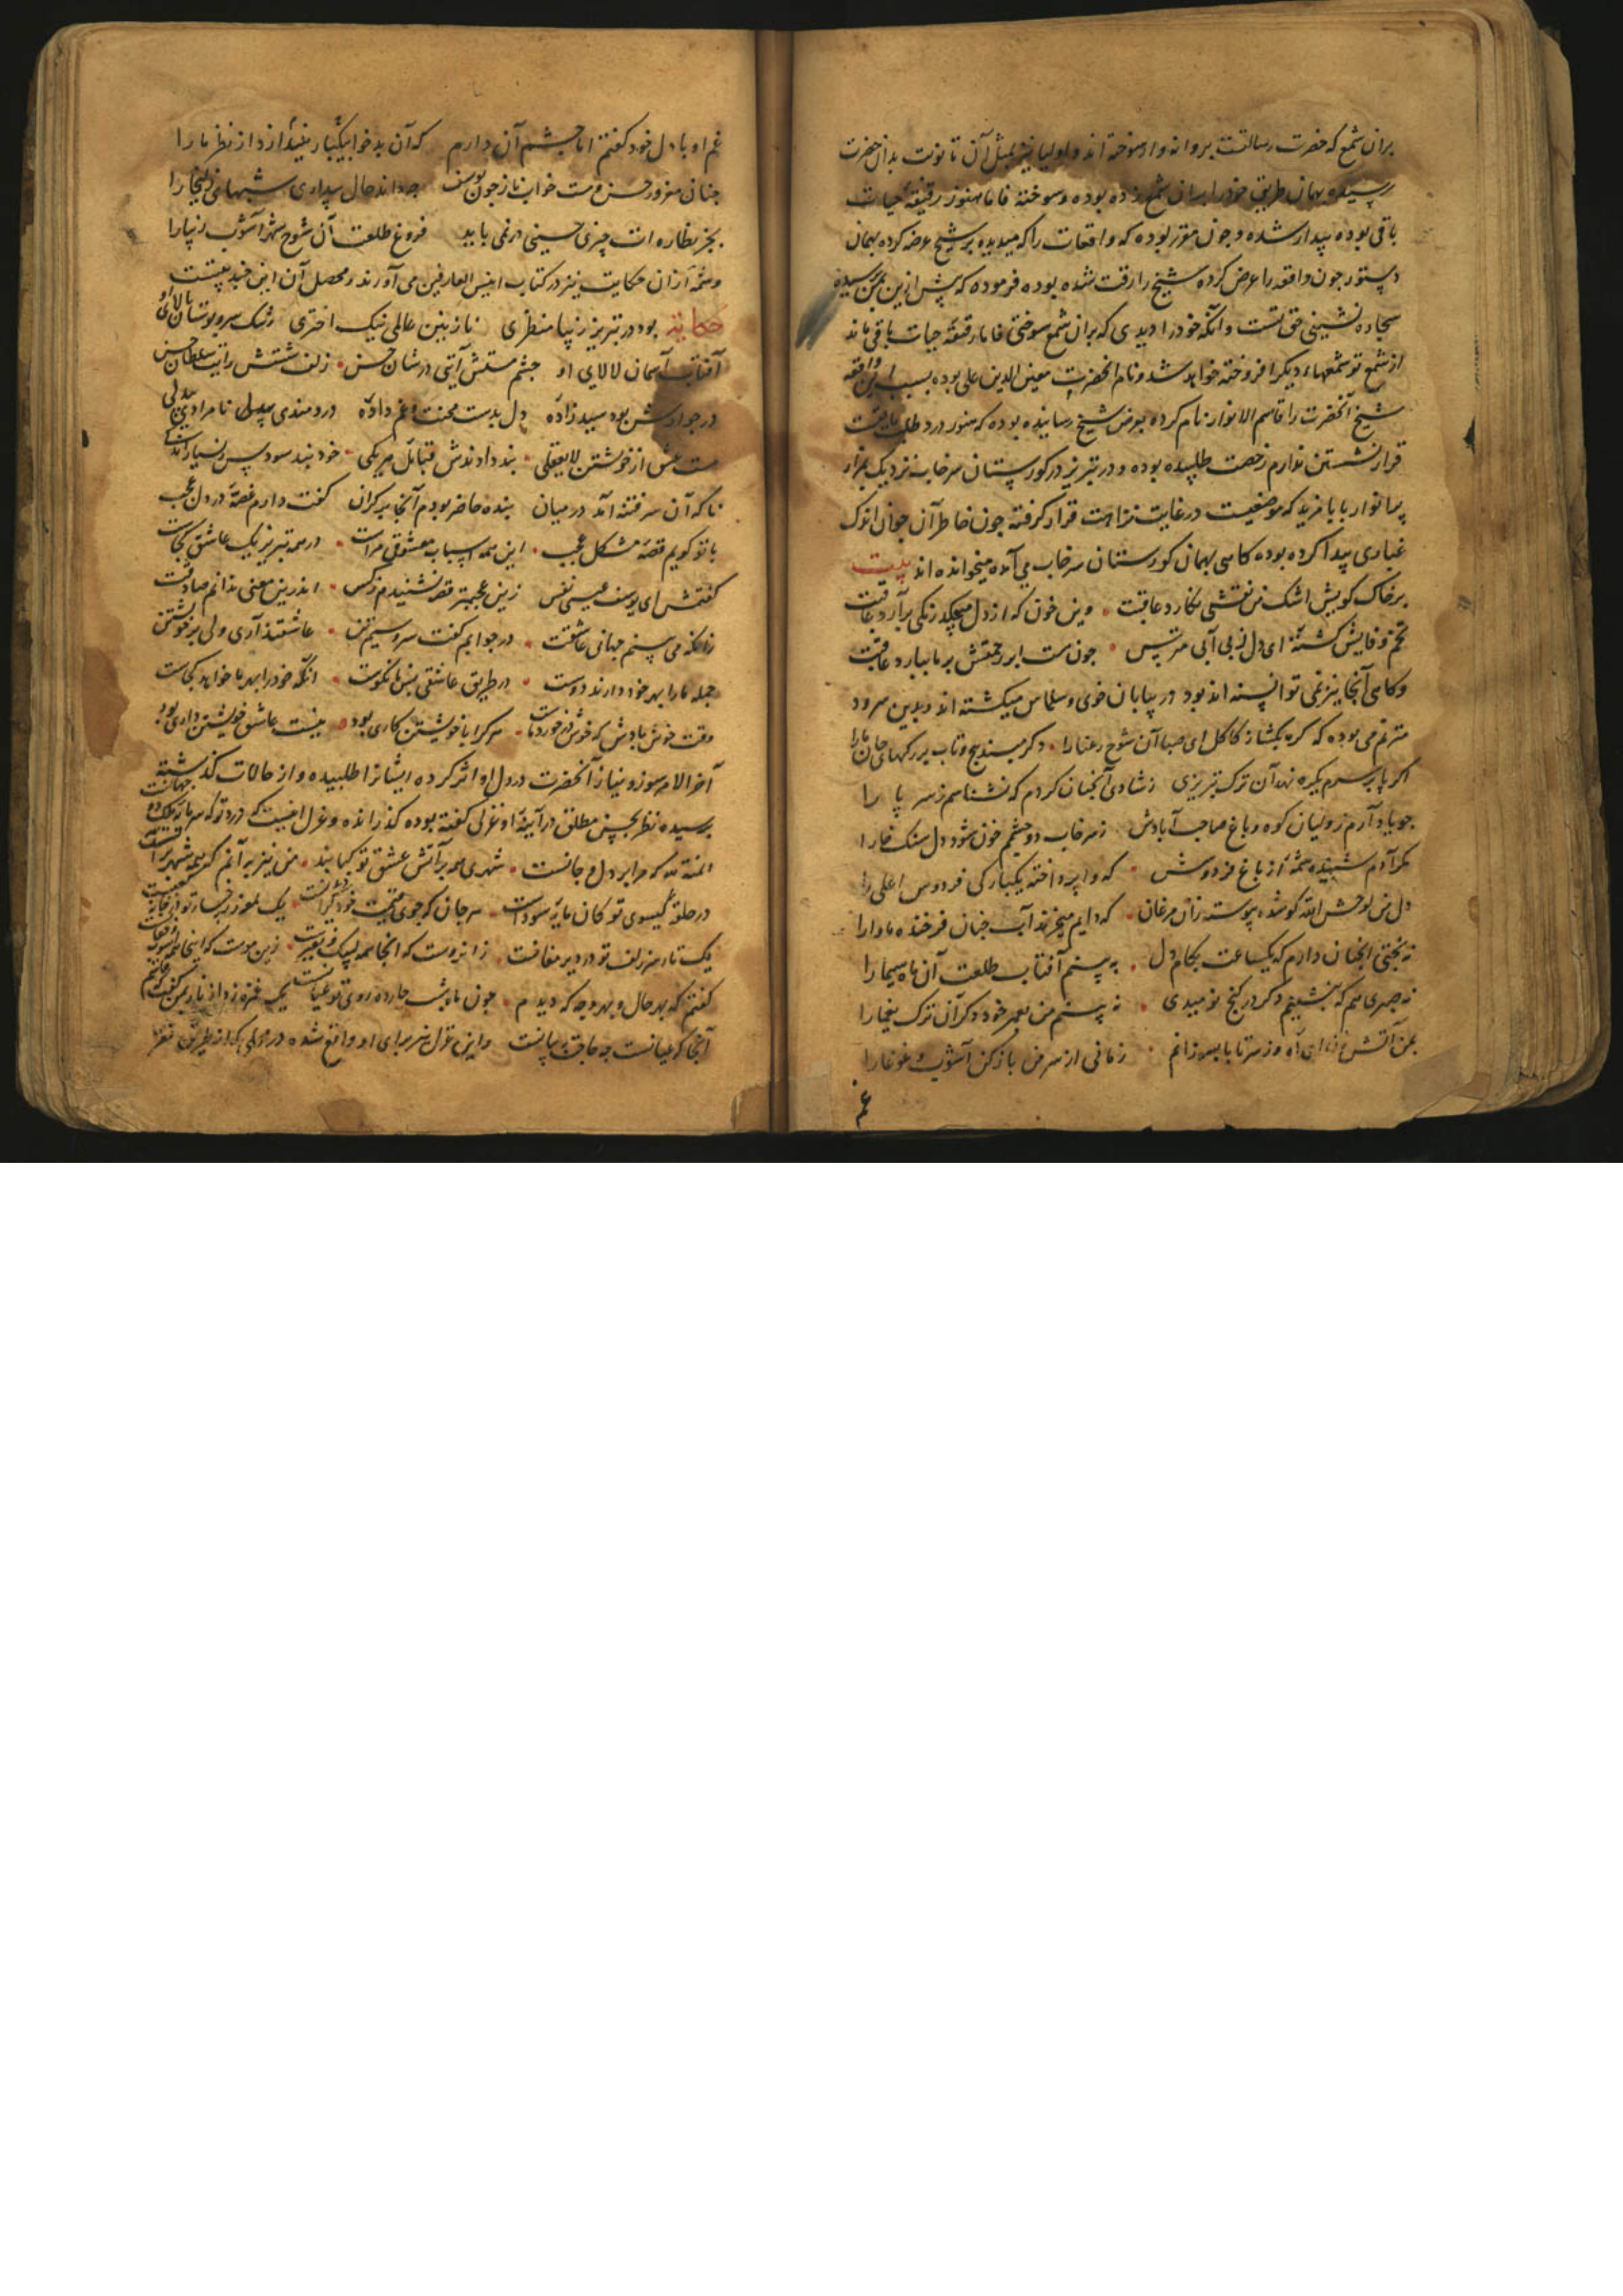 بران شمع که حضرت رسالت پروانه وار سوخته اند و اولیا نیز بمثل آن تا نوبت بدان حضرت
رسیده بهمان طریق خود را بران شمع زده بوده و سوخته فاما هنوز رقیقهٔ حیات
باقی بوده بیدار شده و چون مقرر بوده که واقعات را که میدیده بر شیخ عرضه کرده بهمان
دستور چون واقعه را عرض کرده شیخ را رقت شده بوده فرموده که پیش ازین بمن رسیده
سجاده نشینی حق تست و آنکه خود را دیدی که بران شمع سوختی فاما رقیقهٔ حیات باقی ماند
از شمع تو شمعهاء دیگر افروخته خواهد شد و نام آنحضرت معین الدین علی بوده بسبب این واقعه
شیخ آنحضرت را قاسم الانوار نام کرده بعرض شیخ رسانیده بوده که هنوز درد طلب باقیست
قرار نشستن ندارم رخصت طلبیده بوده و در تبریز در کورستان سرخاب نزدیک بمزار
پر انوار بابا فرید که موضعیست در غایت نزاهت قرار گرفته چون خاطر آن جوان اندک
غباری پیدا کرده بوده کاهی بهمان کورستان سرخاب می آمده میخوانده اند بیت
بر خاک کویش اشک من نقشی نکارد عاقبت وین خون که از دل میچکد رنکی برآرد عاقبت
تخم وفایش کشتهٔ ای دل ز بی آبی مترس چون هست ابر رحمتش بر ما ببارد عاقبت
وکاهی آنجا نیز نمی توانسته اند بود در بیابان خوی و سلماس میکشته اند و بدین سرود
مترنم می بوده که کره بکشا ز کاکل ای صبا آن شوخ رعنا را دکر مپسند پیچ و تاب بر رکهای جان ما را
اکر پا بر سرم یکره نهد آن ترک تبریزی ز شادی آنچنان کردم که نشناسم ز سر پا را
چو یاد آرم ز ولیان کوه و باغ صاحب آبادش ز سرخاب دو چشمم خون شود دل سنک خارا
مکر آدم شنیده شمهٔ از باغ فردوسش که وا پرداخته یکبارکی فردوس اعلی را
دل من لوحش الله کو شده پیوسته زان مرغان که دایم میخرند آب جنان فرخنده ماوا را
نه بختی آنچنان دارم که یکساعت بکام دل به بینم آفتاب طلعت آن ماه سیما را
نه صبری هم که بنشینم دکر در کنج نومیدی نه بینم من بعمر خود دکر آن ترک یغما را
بمن آتش فشان ای آه وز سر تا پا بسوزانم زمانی از سر من باز کن آشوب و غوغا را
غم
غم او با دل خود کفتم اما چشم آن دارم که آن بدخو بیکبار نیندازد از نظر ما را
چنان مغرور حسن و مست خواب ناز چون یوسف چه داند حال بیداری شبهای زلیخا را
بجز نظاره ات چیزی حسینی در نمی یابد فروغ طلعت آن شوخ شهر آشوب زیبا را
و شمهٔ از ان حکایت نیز در کتاب انیس العارفین می آورند و محصل آن این چند بیتست
حکایة بود در تبریز زیبا منظری نازنین عالمی نیک اختری رشک سرو بوستان بالای او
آفتاب آسمان لالای او چشم مستش آیتی در شان حسن زلف شستش رایت سلطان حسن
در جوارش بود سیدزاده دل بدست محنت و غم داده دردمندی بیدلی نامرادی بیدلی
مست عشق از خویشتن لایعقلی پند دادندش قبائل هر یکی خود نبد سودش
ناکه آن سر فتنه آمد در میان بنده حاضر بودم آنجا بر کران کفت دارم غصهٔ در دل عجب
با تو کویم قصهٔ مشکل عجب این همه اسباب معشوقی مراست در همه تبریز یک عاشق کجاست
کفتمش ای یوسف عیسی نفس زین عجبتر قصه نشنیدم ز کس اندرین معنی ندانم صادقست
زانکه می بینم جهانی عاشقت در جوابم کفت سرو سیم تن عاشقند آری ولی بر خویشتن
جمله ما را بهر خود دارند دوست در طریق عاشقی نکوست آنکه خود را بهر ما خواهد کجاست
وقت خوش بادش که خوش هر کرا با خویشتن کاری بود نیست عاشق خویشتن داری بود
آخر الامر سوز و نیاز آنحضرت در دل او اثر کرده ایشانرا طلبیده و از حالات کذشته
پرسیده نظر بحسن مطلق در آیینهٔ او غزلی کفته بوده کذرانده و غزل اینست که
المنة لله که مرا بر دل و جانست شهری همه بر آتش عشق تو کبابند من نیز بر آنم که همه شهر بر آنست
در حلقهٔ کیسوی تو کان مایهٔ سوداست
یک تار سر زلف تو در دیر مغانست
کفتم که بهر حال و بهر وجه که دیدم چون ماه شب چارده روی تو عیانست
آنجا که عیانست چه حاجت به بیانست و این غزل نیز برای او واقع شده